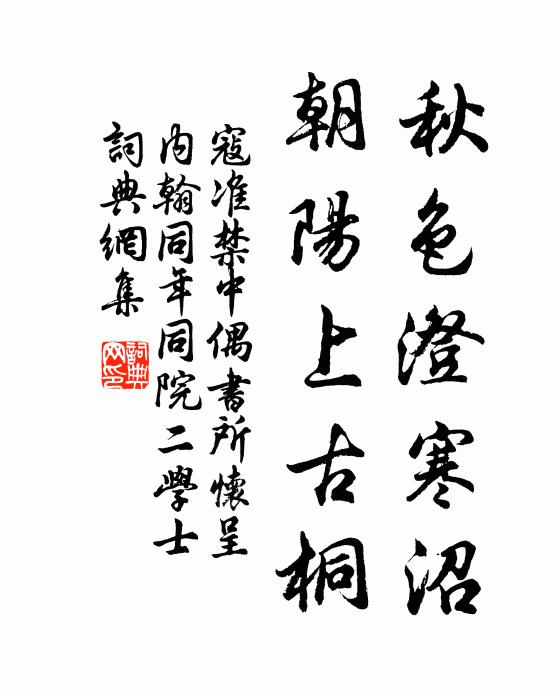 秋色澄寒沼
朝陽上古桐
寇准禁中偶書所懷呈
内翰同年同院二學士
詞典網集
詞典網印